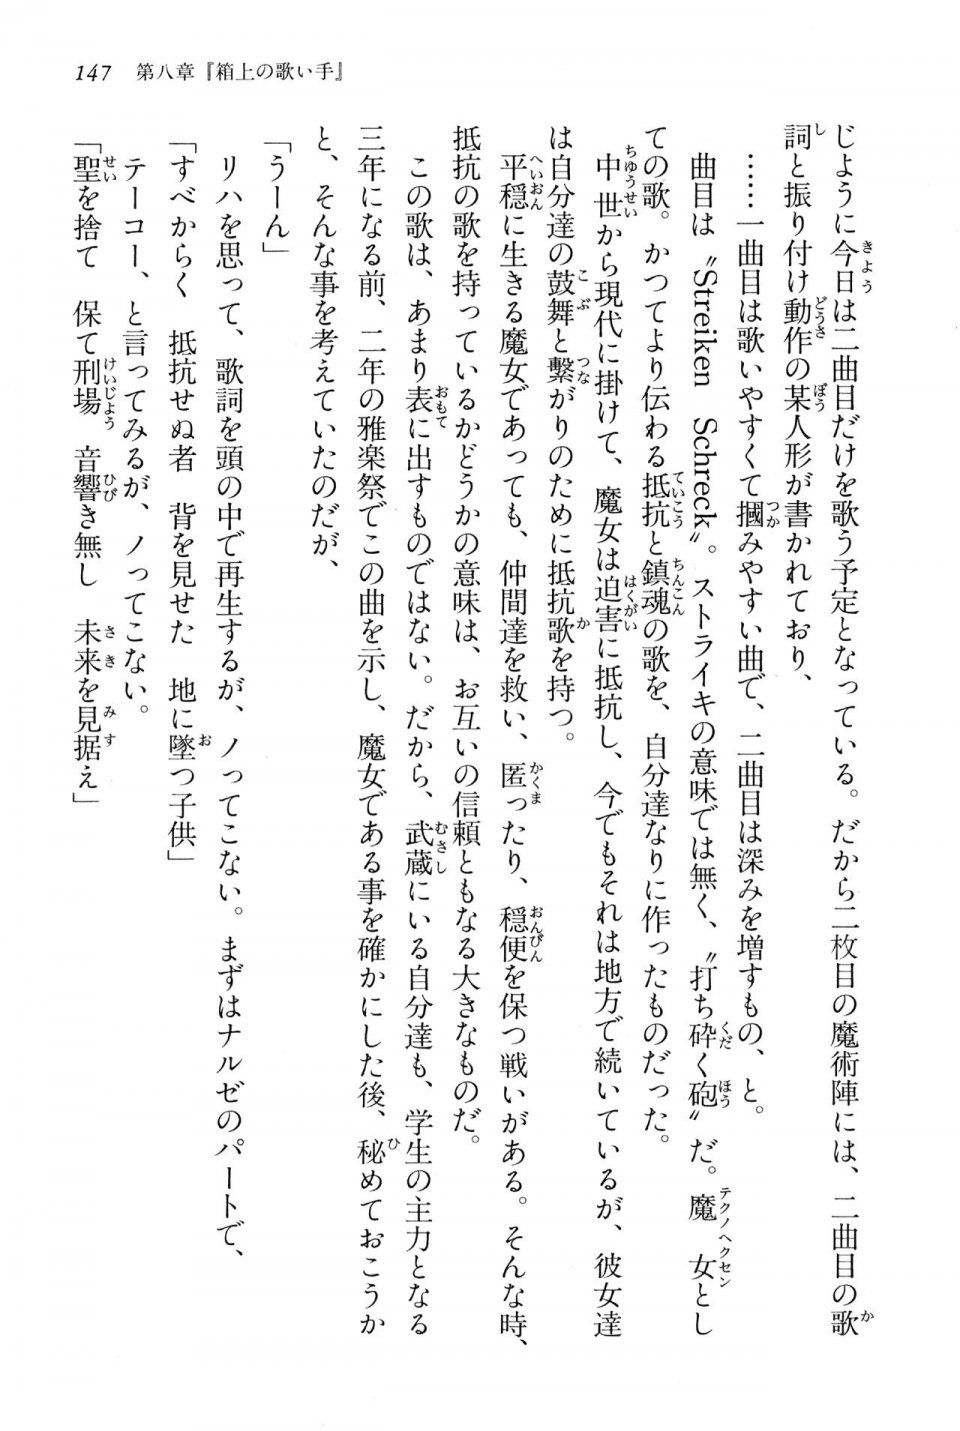 147　第八章『箱上の歌い手』
じように今日は二曲目だけを歌う予定となっている。だから二枚目の魔術陣には、二曲目の歌
詞と振り付け動作の某人形が書かれており、
……一曲目は歌いやすくて摑みやすい曲で、二曲目は深みを増すもの、と。
曲目は〝Streiken　Schreck〟。ストライキの意味では無く、〝打ち砕く砲〟だ。魔女とし
ての歌。かつてより伝わる抵抗と鎮魂の歌を、自分達なりに作ったものだった。
中世から現代に掛けて、魔女は迫害に抵抗し、今でもそれは地方で続いているが、彼女達
は自分達の鼓舞と繫がりのために抵抗歌を持つ。
平穏に生きる魔女であっても、仲間達を救い、匿ったり、穏便を保つ戦いがある。そんな時、
抵抗の歌を持っているかどうかの意味は、お互いの信頼ともなる大きなものだ。
この歌は、あまり表に出すものではない。だから、武蔵にいる自分達も、学生の主力となる
三年になる前、二年の雅楽祭でこの曲を示し、魔女である事を確かにした後、秘めておこうか
と、そんな事を考えていたのだが、
「うーん」
リハを思って、歌詞を頭の中で再生するが、ノってこない。まずはナルゼのパートで、
「すべからく　抵抗せぬ者　背を見せた　地に墜つ子供」
テーコー、と言ってみるが、ノってこない。
「聖を捨て　保て刑場　音響き無し　未来を見据え」